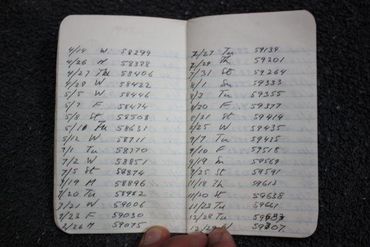 4/19 W 58299
4/26 M 58378
4/27 Tu 58406
4/28 W 58422
5/5 W 58446
5/7 F 58474
5/8 St 58508
5/18 Tu 58631
5/12 W 58711
7/1 Tu 58770
7/2 W 58851
7/3 St 58874
7/19 M 58896
7/20 Tu 58962
7/21 W 59006
7/23 F 59030
7/26 M 59075
7/27 Tu 59139
7/29 Th 59201
7/31 St 59264
8/1 Sn 59333
8/3 Tu 59355
8/20 F 59377
8/21 St 59419
8/25 W 59435
9/7 Tu 59475
9/10 F 59518
9/19 Sn 59569
9/25 St 59591
11/18 Th 59613
11/20 St 59638
11/23 Tu 59661
12/28 Tu
12/29 W 59707